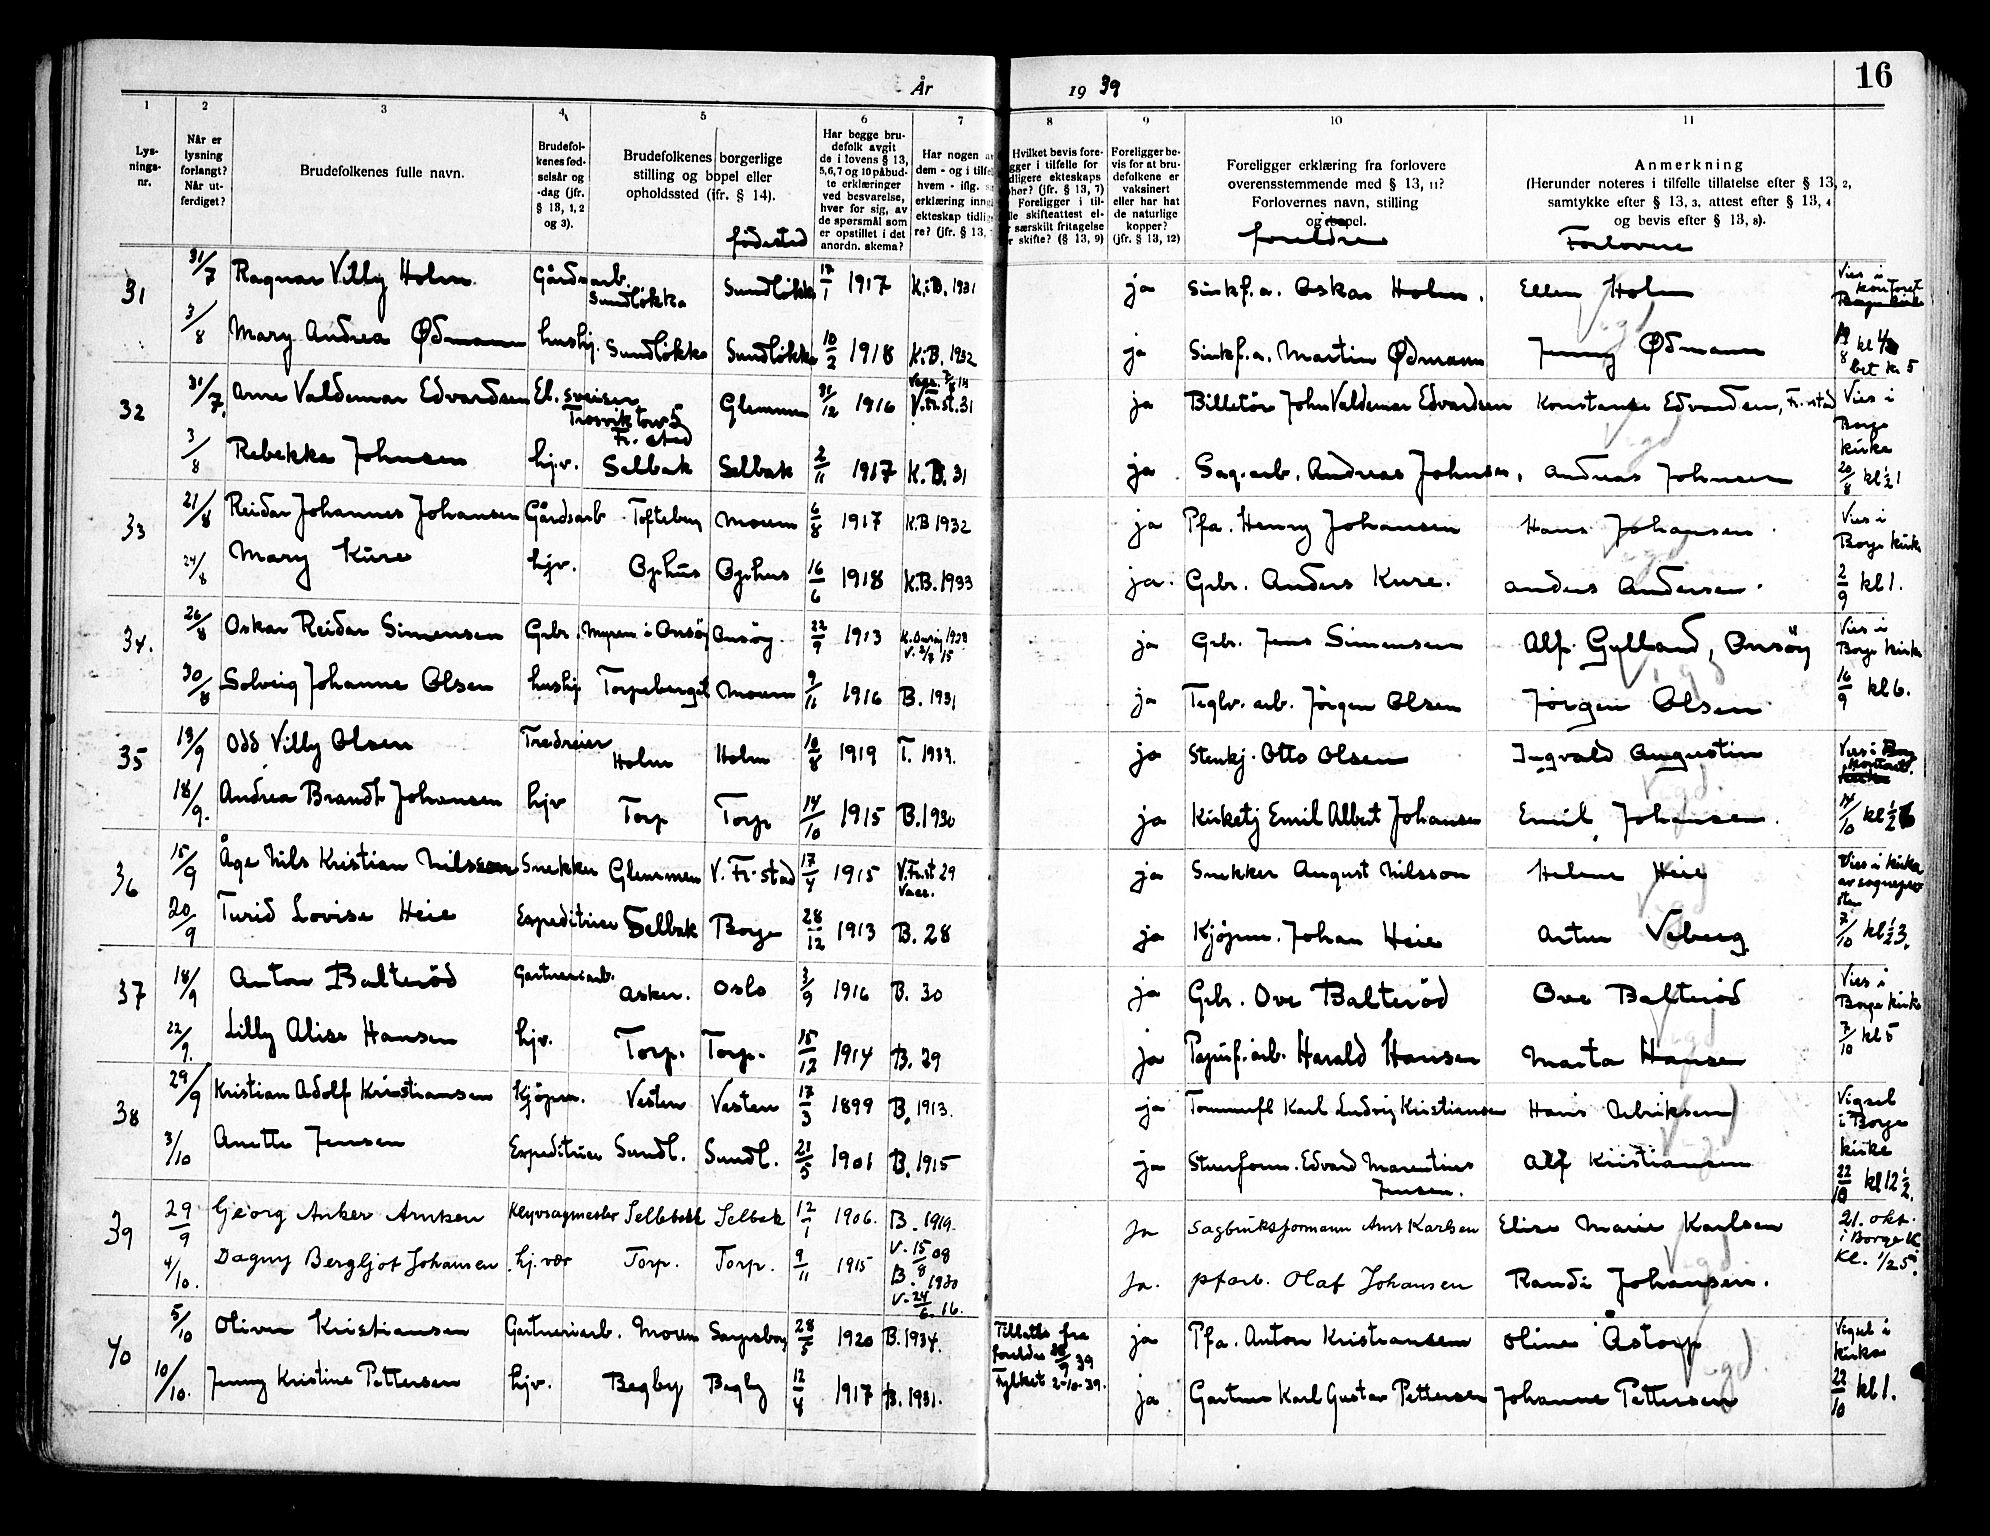 År 1939 16
1 2 3 4 5 6 7 8 9 10 11
Lys-
nings-
nr.
Når er
lysning
forlangt?
Når ut-
ferdiget?
Brudefolkenes fulle navn.
Brudefol-
kenes fød-
selsår og
-dag (jfr.
§ 13, 1, 2
og 3).
Brudefolkenes borgerlige
stilling og bopel eller
opholdssted (jfr. § 14).
fødested
Har begge bru-
defolk avgit
de i lovens § 13,
5, 6, 7 og 10 påbud-
te erklæringer
ved besvarelse,
hver for sig, av
de spørsmål som
er opstillet i det
anordn. skema?
Har nogen a
dem - og i tilfel
hvem - iflg.
erklæring inng
ekteskap tidlig
re? (jfr. § 13,
Hvilket bevis fore-
gger i tilfelle for
dligere ekteskaps
phør? (jfr. § 13, 7)
Foreligger i til-
lle skifteattest el-
r særskilt fritagelse
r skifte? (§ 13, 9)
Foreligger be-
vis for at bru-
defolkene er
vaksinert
eller har hat
de naturlige
kopper?
(jfr. § 13, 12)
Foreligger erklæring fra forlovere
overensstemmende med § 13, 11?
Forlovernes navn, stilling
og bopel.
foreldre
Anmerkning
(Herunder noteres i tilfelle tillatelse efter § 13, 2,
samtykke efter § 13, 3, attest efter § 13, 4
og bevis efter § 13, 8).
Forlovere
31 31/7 Ragnar Villy Holm Gårdsarb. Sundløkka Sundløkka 17/1 1917 K.B. 1931 ja Sinkf.a. Oskar Holm. Ellen Holm Vies i kontoret Borge kirke
3/8 Mary Andrea Ødmann hushj. Sundløkka Sundløkka 10/2 1918 K.B. 1932 ja Sinkf.a. Martin Ødmann Jenny Ødmann bet kr. 5
32 31/7 Arne Valdemar Edvardsen El. sveiser Fr. stad Glemmen 31/12 1916 V.Fr.st. 31 ja Billetør John Valdemar Edvardsen Konstanse Edvardsen, Fr.stad Vies i Borge kirke
3/8 Rebekka Johnsen hj.v. Selbak Selbak 2/11 1917 K.B. 31 ja Sag.arb. Andreas Johnsen, Andreas Johnsen 20/8 kl ½ 1
33 21/8 Reidar Johannes Johansen Gårdsarb Tofteberg Moum 6/8 1917 K.B 1932 ja Pfa. Henry Johansen Hans Johansen Vies i Borge kirke
24/8 Mary Kure hjv. Ophus Ophus 16/6 1918 K.B. 1933 ja. Grbr. Anders Kure. Anders Andersen 2/9 kl 1.
34. 26/8 Oskar Reidar Simensen Grbr. Myren i Onsøy Onsøy. 22/9 1913 K. Onsøy 1928 ja Grbr. Jens Simensen Alf Gylland, Onsøy Vies i Borge kirke
30/8 Solveig Johanne Olsen hushj. Torpeberget Moum 9/11 1916 B. 1931 ja Teglv. arb. Jørgen Olsen Jørgen Olsen 16/9 kl 6.
35 13/9 Odd Villy Olsen Tredreier Holm Holm 10/8 1919 T. 1933. ja Stenhj. Otto Olsen Ingvald Augustin
18/9. Andrea Brandt Johansen hjv Torp Torp 14/10 1915 B. 1930 ja Kirketj Emil Albert Johansen Emil Johansen. 14/10
36 15/9 Åge Nils Kristian Nilsson Snekker Glemmen V. Fr.stad 17/4 1915 V.Fr.st 29 Vacc. ja Snekker August Nilsson Helene Heie Vies i kirke av sogneprosten
20/9 Turid Lovise Heie Expeditrise Selbak Borge 28/12 1913 B. 28 ja Kjøpm. Johan Heie Artur Veberg 7/10 kl ½ 3.
37 18/9 Anton Balterød Gartneriarb. Asker. Oslo 3/9 1916 B. 30 ja Grbr. Ove Balterød Ove Balterød Vies i Borge kirke
22/9. Lilly Alise Hansen hjv. Torp. Torp. 15/12 1914 B. 29 ja Papirf.arb. Harald Hansen Marta Hansen 7/10 kl 5
38 29/9 Kristian Adolf Kristiansen Kjøpm. Vesten Vesten 17/3 1899 B. 1913. ja Tømmerfl Karl Ludvig Kristiansen Hans Ulriksen Vigsel i Borge kirke
3/10 Anette Jensen Expeditrise Sundl. Sundl. 21/5 1901 B. 1915 ja Stuerform. Edvard Marentius Jensen. Alf Kristiansen 22/10 kl 12 ½.
39 29/9 Georg Anker Arntzen Kløvsagmester Selbakk Selbak 12/1 1906. B. 1919. V. 15/8 08 ja Sagbruksformann Arnt Karlsen Elise Marie Karlsen 21. okt. i Borge K. Kl. ½ 5.
4/10. Dagny Bergljot Johansen hj.vær Torp. Torp. 9/11 1915 B. 1930 V. 24/6. 16. ja. pfarb. Olaf Johansen Randi Johansen.
40 5/10 Oliver Kristiansen Gartneriarb. Moum Sarpsborg 28/5 1920 B. 1934. Tillatls fra foreldre 28/9 39 Fylket 2-10-39. ja Pfa. Anton Kristiansen Oline Åstorp Vigsel i kirka
10/10. Jenny Kristine Pettersen hjv. Begby Begby 12/4 1917 B. 1931. ja Gartner Karl Gustav Pettersen Johanne Pettersen 22/10 kl 1.